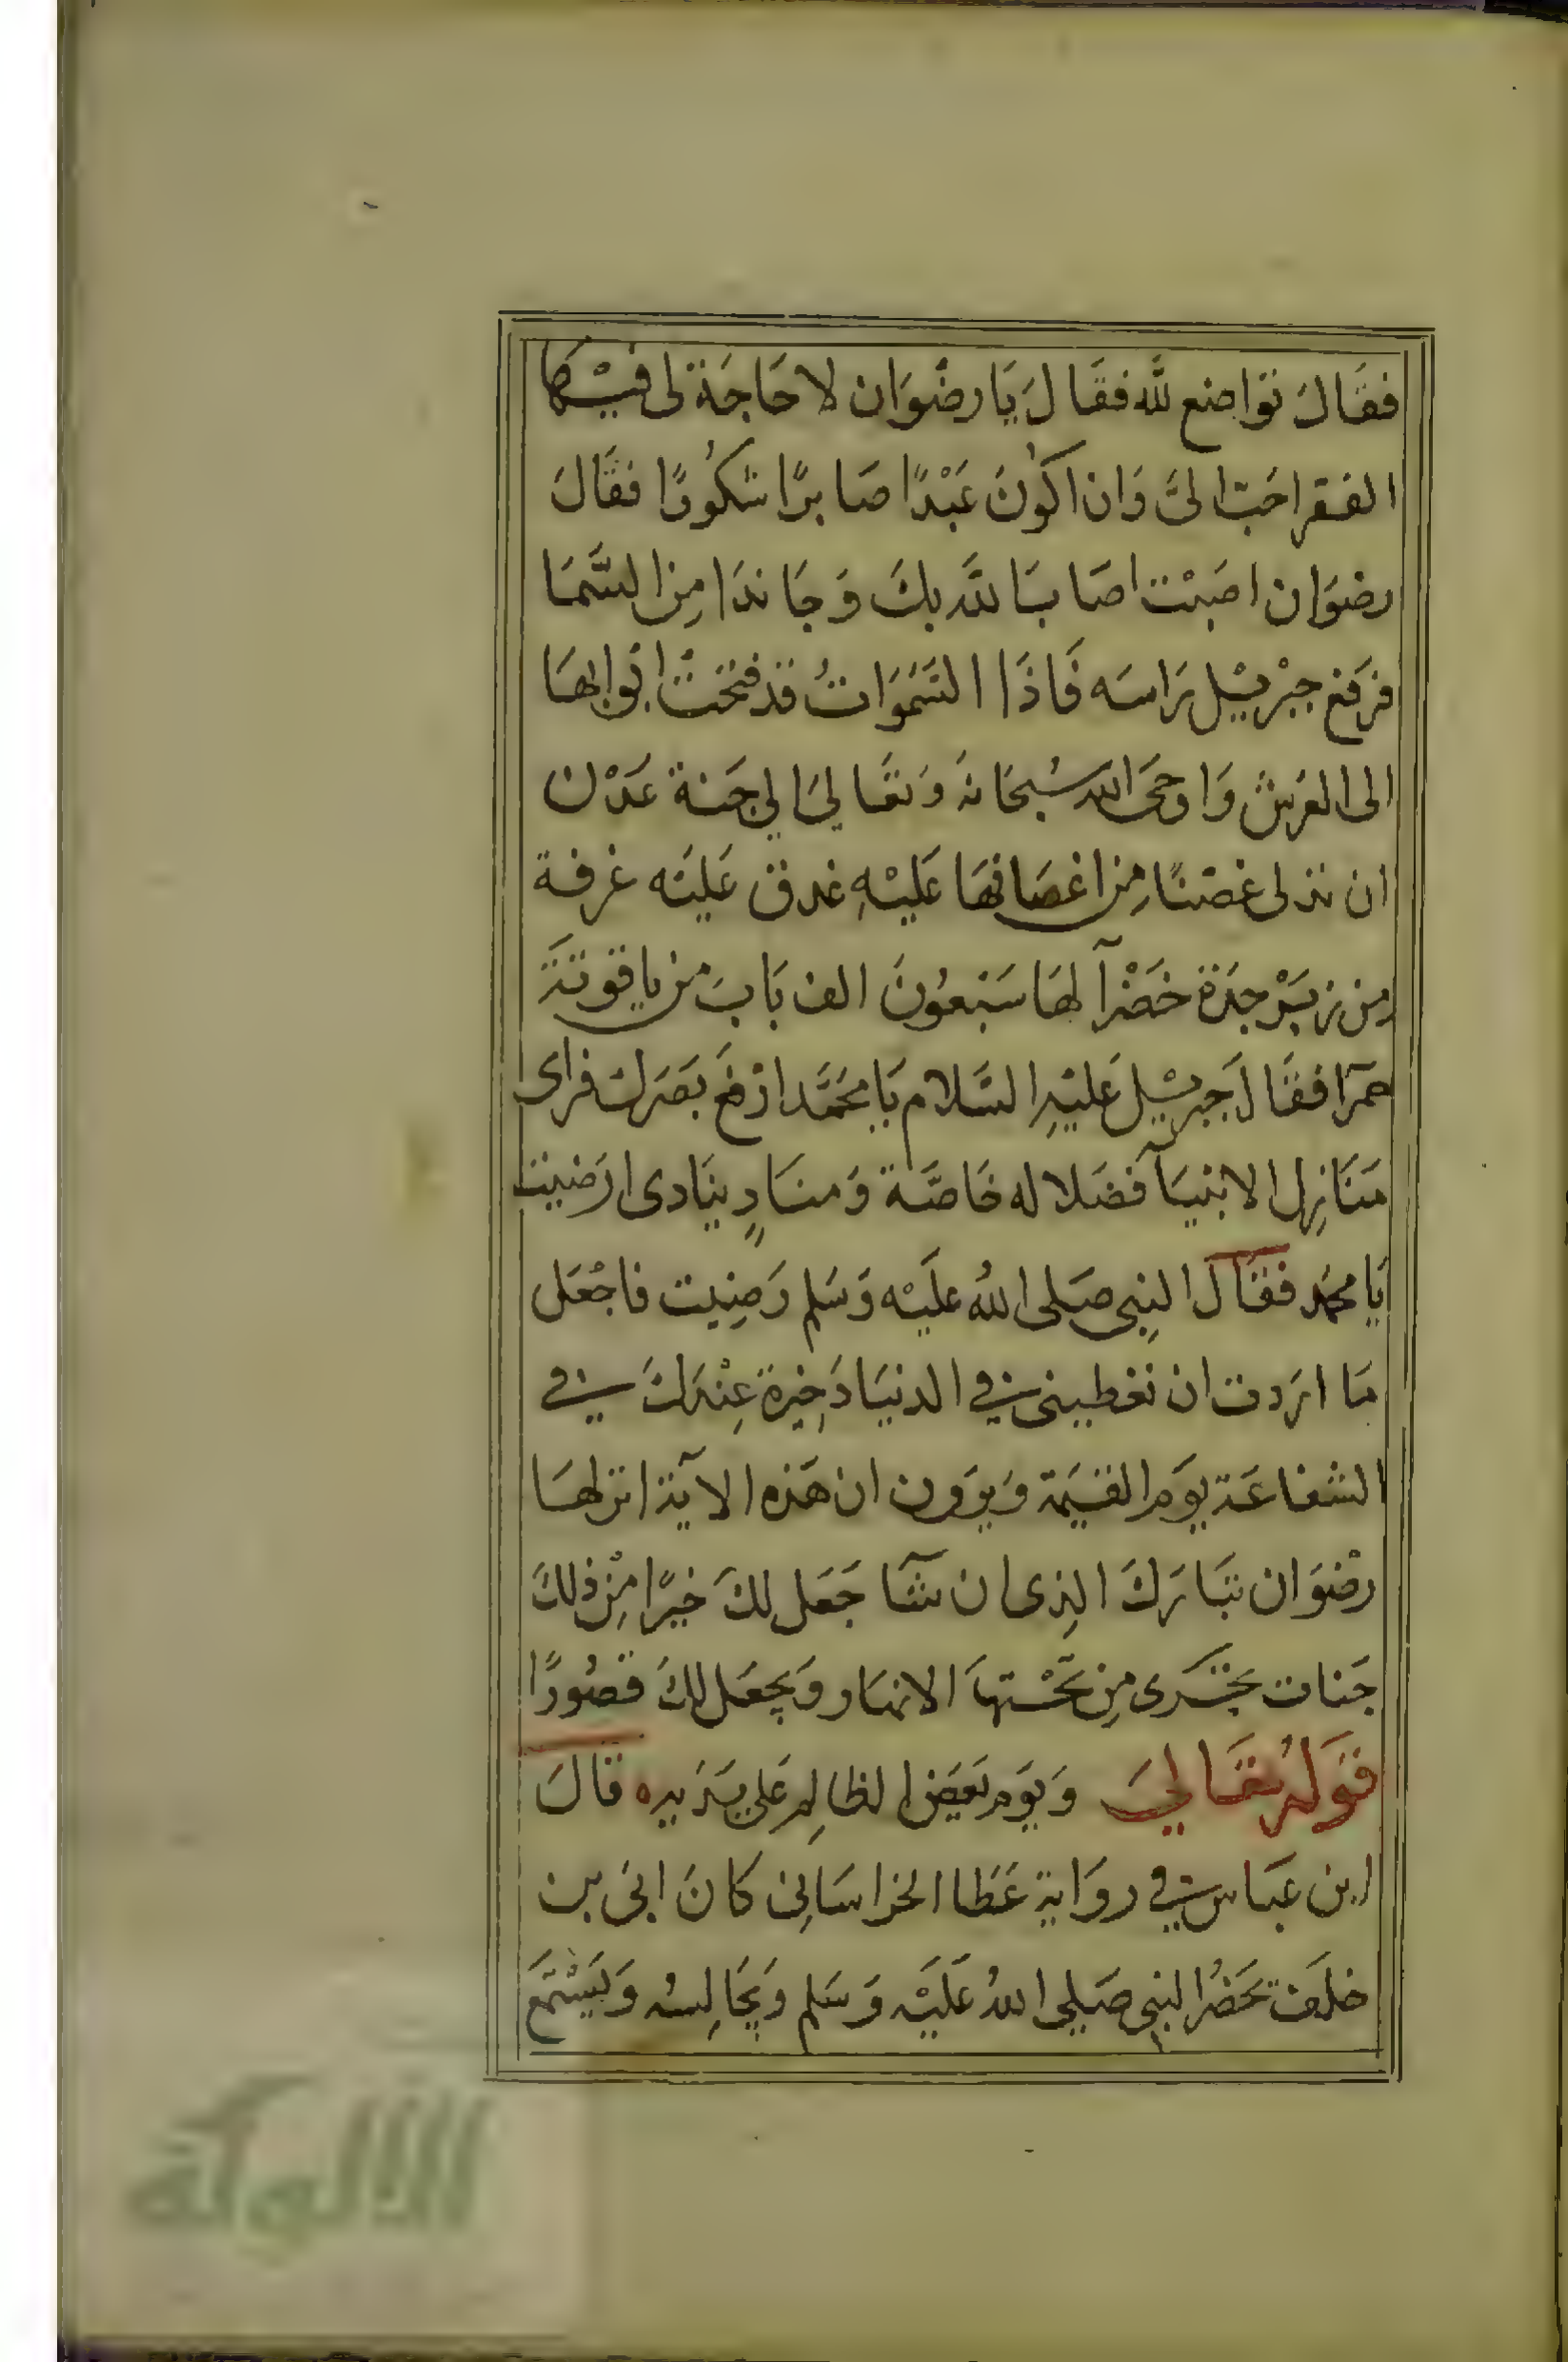 فقَالَ تواضع لله فقَالَ يَا رضْوَان لا حَاجَة لى فيْها
الفقر احَبّ الىَّ وَان اكُونَ عَبْدًا صَابرًا شكُورًا فقَالَ
رضوَان اصَبْت اصَابَ اللَّه بكَ وَجَا ندَا مِن السَّمَا
فرَفع جبْريْل رَاسَه فَاذَا السَّمَوَاتُ قد فتحَتْ ابوابهَا
الى العَرش وَاوحَى الله سُبحَانهَ وَتعَالىَ الى جَنة عَدْن
ان تدلى غصْنًا مِن اغصَانهَا عَليْهِ غدق عَليَه غرفة
من زبَرْجدَة خَضْرآ لهَا سَبْعُونَ الف بَابَ من ياقوتَة
حمرَآ فقَالَ جَبريْل عَليْهِ السَّلام يَا محَمَّد ارْفعَ بَصَركَ فراى
مَنَازِل الانبيَآ فضَلا له خَاصَّة وَمنَادٍ ينَادى ارَضيت
يَا محمَد فقَالَ النِبى صَلى اللهُ عليَه وَسَلم رَضِيت فاجْعَل
مَا ارَدت ان تعطينى فى الدنيَا ذَخِيرة عِنْدكَ فى
الشفاعَة يوَم القيَمة وَيرَون ان هَذه الآيَة انزلهَا
رضْوَان تبَارَكَ الذِى ان شَآ جَعَل لكَ خيرًا مِنْ ذلكَ
جَنات تجْرَى مِن تحْتهَا الانهَار وَيجعَل لكَ قصُورًا
قوَلهُ تعَالىَ وَيوَم يعَضّ الظالِم عَلى يدَيه قالَ
ابن عبَاس فى روَاية عَطا الخراسَانِى كانَ ابىَ بن
خلَف تحضُر النبِى صَلى اللهُ عَليَه وَسَلم وَيجَالِسُه وَيَسْتَمَع
الألوكة